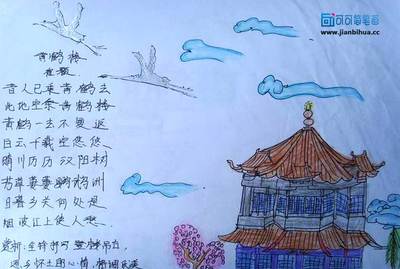 黄鹤楼
崔颢
昔人已乘黄鹤去
此地空余黄鹤楼
黄鹤一去不复返
白云千载空悠悠
晴川历历汉阳树
芳草萋萋鹦鹉洲
日暮乡关何处是
烟波江上使人愁
可可简笔画
www.jianbihua.cc